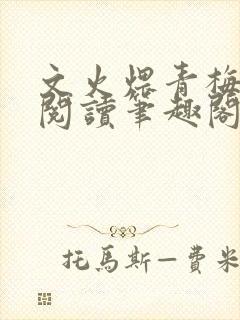 文火煨青梅
閱讀筆趣閣
托馬斯—費米